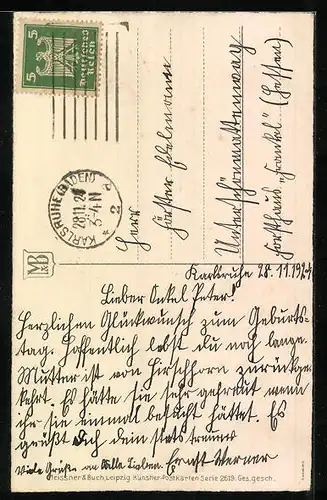 5 Deutsches Reich 5
KARLSRUHE (BADEN)
28.11.24
3-4 N
* 2 d
Herr
Förster Edelmann
Unterschönmattenwag
Forsthaus „Frankel“ (Hessen)
MB
Karlsruhe 28.11.1924
Lieber Onkel Peter!
Herzlichen Glückwunsch zum Geburts-
tag. Hoffentlich lebst du noch lange.
Mutter ist von Hirschhorn zurückge-
kehrt. Es hätte sie sehr gefreut wenn
ihr sie einmal besucht hättet. Es
grüßt dich dein stets treuer
Viele Grüße an Alle Lieben. Ernst Werner
Meissner & Buch, Leipzig Künstler-Postkarten Serie 2619. Ges. gesch.